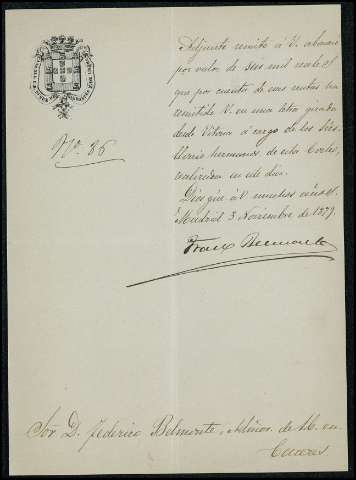 Nº. 36
Adjunto remito á V. abonaré
por valor de seis mil reales
que por cuenta de sus rentas ha
remitido V. en una letra girada
desde Vitoria á cargo de los Sres.
hermanos de esta Corte,
realizada en este dia.
Dios gue. á V. muchos años.
Madrid 3 Noviembre de 1879.
Franco Belmonte
Sor. D. Federico Belmonte, Admor. de M. en
Caceres